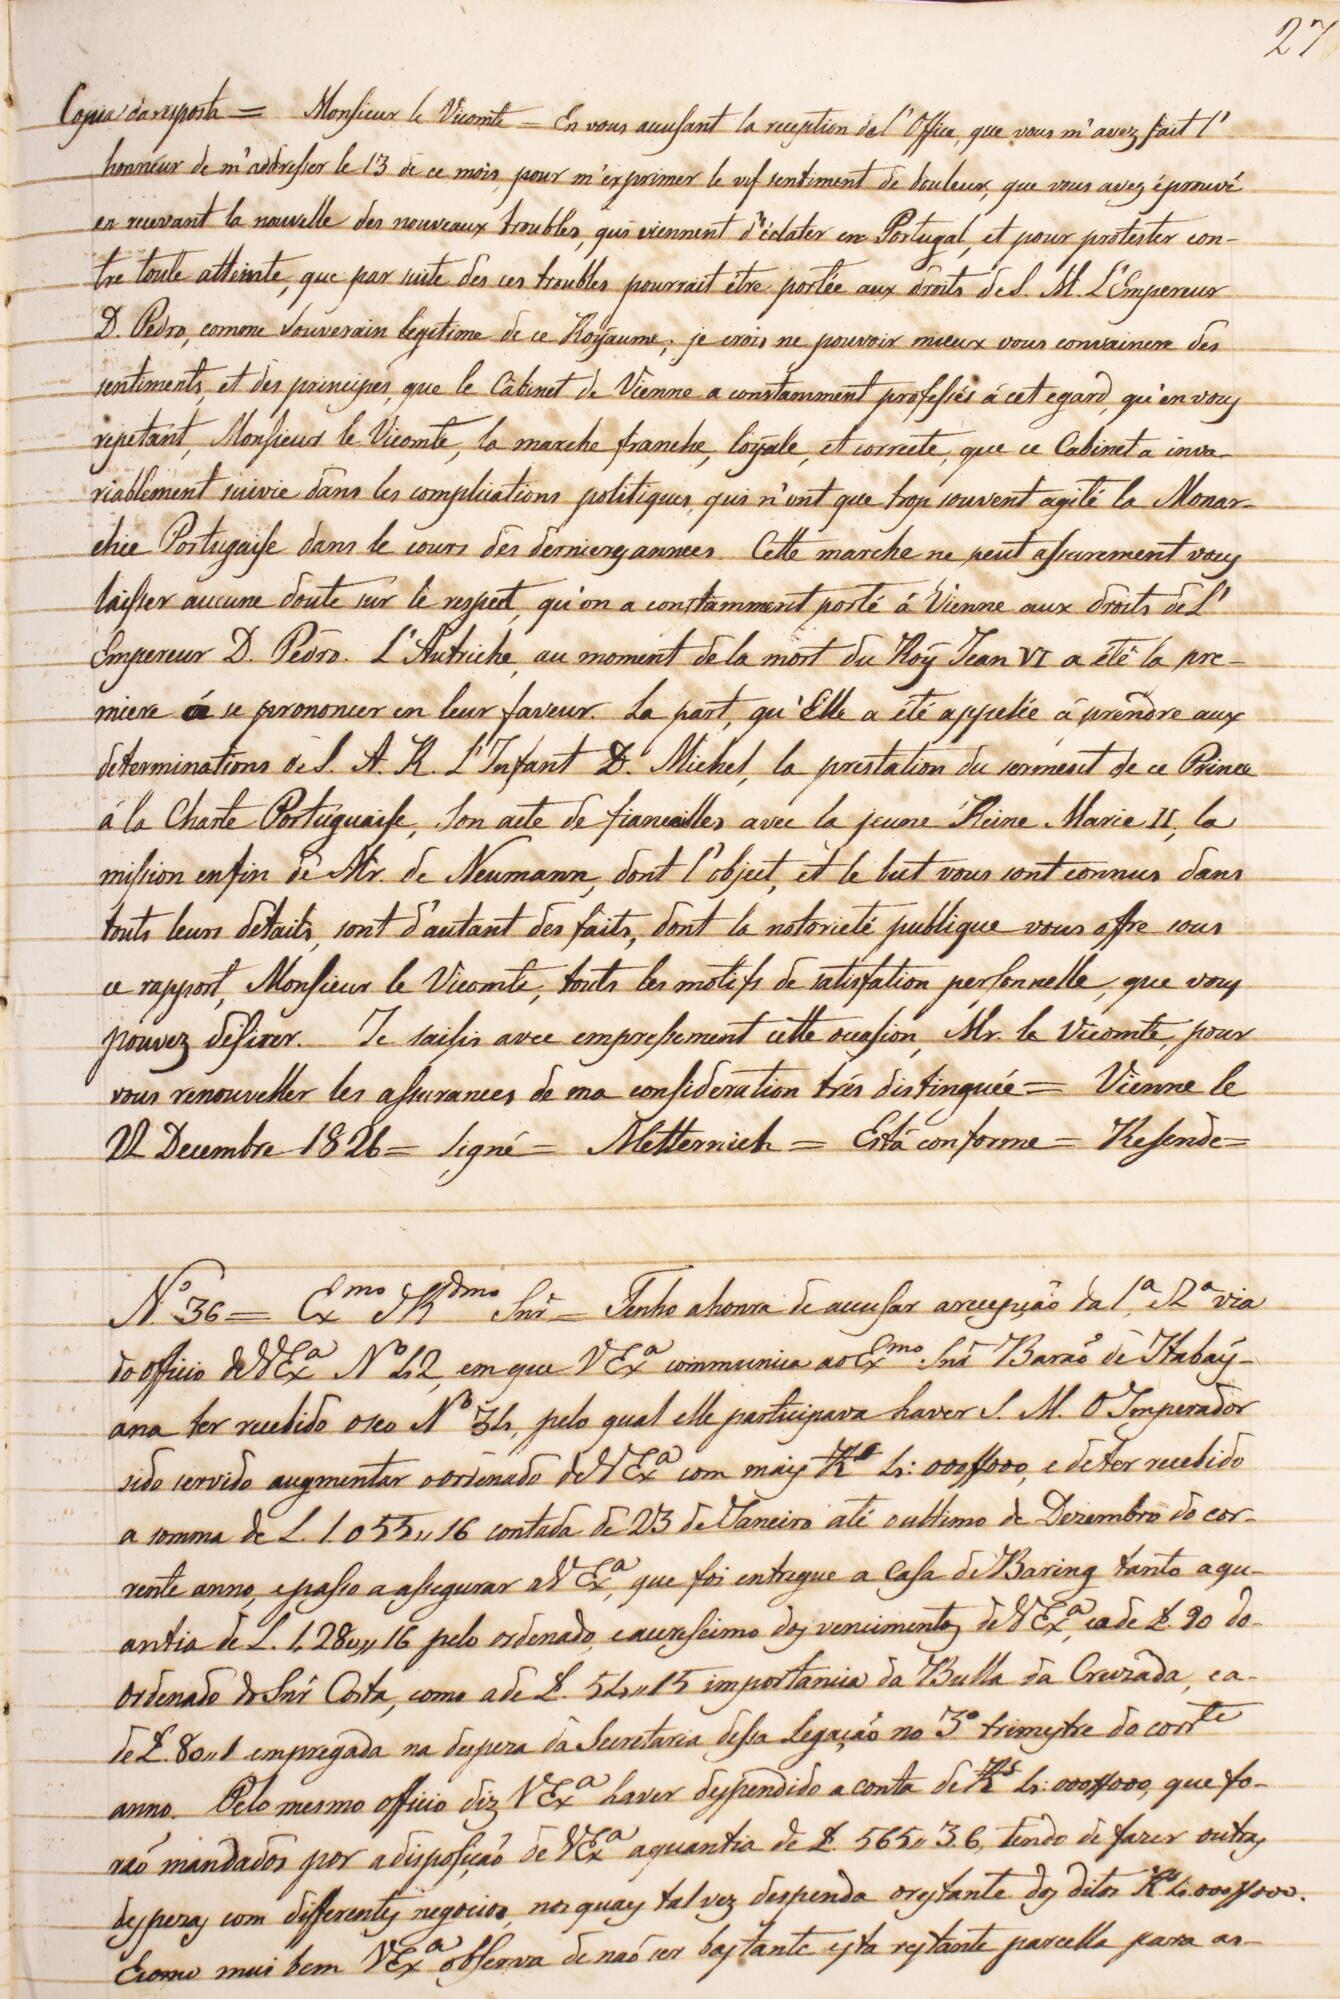 27
Copia da resposta = Monsieur le Vicomte = En vous accusant la reception de l'Office, que vous m'avez fait l'
honneur de m'addresser le 13 de ce mois, pour m'exprimer le vif sentiment de douleur, que vous avez éprouvé
en recevant la nouvelle des nouveaux troubles, qui viennent d'éclater en Portugal, et pour protester con-
tre toute atteinte, que par suite des ces troubles pourrait être portée aux droits de S. M. L'Empereur
D. Pedro, comme Souverain legitime de ce Royaume; je crois ne pouvoir mieux vous convaincre des
sentiments, et des principes, que le Cabinet de Vienne a constamment professés á cet egard, qu'en vous
repetant, Monsieur le Vicomte, la marche franche, loyale, et correcte, que ce Cabinet a inva-
riablement suivie dans les complications politiques, qui n'ont que trop souvent agité la Monar-
chie Portugaise dans le cours des derniers annees. Cette marche ne peut assurement vous
laisser aucune doute sur le respect, qu'on a constamment porté á Vienne aux droits de L'
Empereur D. Pedro. L'Autriche, au moment de la mort du Roy Jean VI a été la pre-
miere á se prononcer en leur faveur. La part, qu'Elle a été appelée á prendre aux
determinations de S. A. R. L'Infant D. Michel, la prestation du serment de ce Prince
á la Charte Portuguaise, Son acte de fiancailles avec la jeune Reine Marie II, la
mission enfin de Mr. de Neumann, dont l'object, et le but vous sont connus dans
touts leurs détails, sont d'autant des faits, dont la notorieté publique vous offre sous
ce rapport, Monsieur le Vicomte, touts les motifs de satisfation personnelle, que vous
pouvez désirer. Je saisis avec empressement cette occasion, Mr. le Vicomte, pour
vous renouveller les assurances de ma consideration trés distinguée = Vienne le
22 Decembre 1826 = signé = Metternich = Está conforme = Resende =
Nº 36 = Exmo e Rdmo Snr = Tenho a honra de accusar a recepção da 1ª e 2ª via
do officio de V Exª Nº 42, em que V Exª communica ao Exmo Snr Barão de Itabay-
ana ter recebido o seo Nº 34, pelo qual elle participava haver S. M. O Imperador
sido servido augmentar o ordenado de V Exª com mais Rs 4:000$000, e de ter recebido
a somma de L. 1.055,,16 contada de 23 de Janeiro até o ultimo de Dezembro do cor-
rente anno, e passo a assegurar a V Exª, que foi entregue a Casa de Baring tanto a qu-
antia de L. 1,280,,16 pelo ordenado, e accrescimo dos vencimentos de V Exª, e a de L. 90 do
ordenado do Snr Costa, como a de L. 54,,15 importancia da Bulla da Cruzada, e a
de L. 80,,1 empregada na despeza da Secretaria dessa Legação no 3º trimestre do corrte
anno. Pelo mesmo officio diz V Exª haver despendido a conta de Rs 4:000$000, que fo-
raõ mandados por a disposição de V Exª a quantia de L. 565,,3.6, tendo de fazer outras
despezas com differentes negocios, nos quaes talvez despenda o restante dos ditos Rs 4:000$000.
E como mui bem V Exª observa de naõ ser bastante esta restante parcella para as-